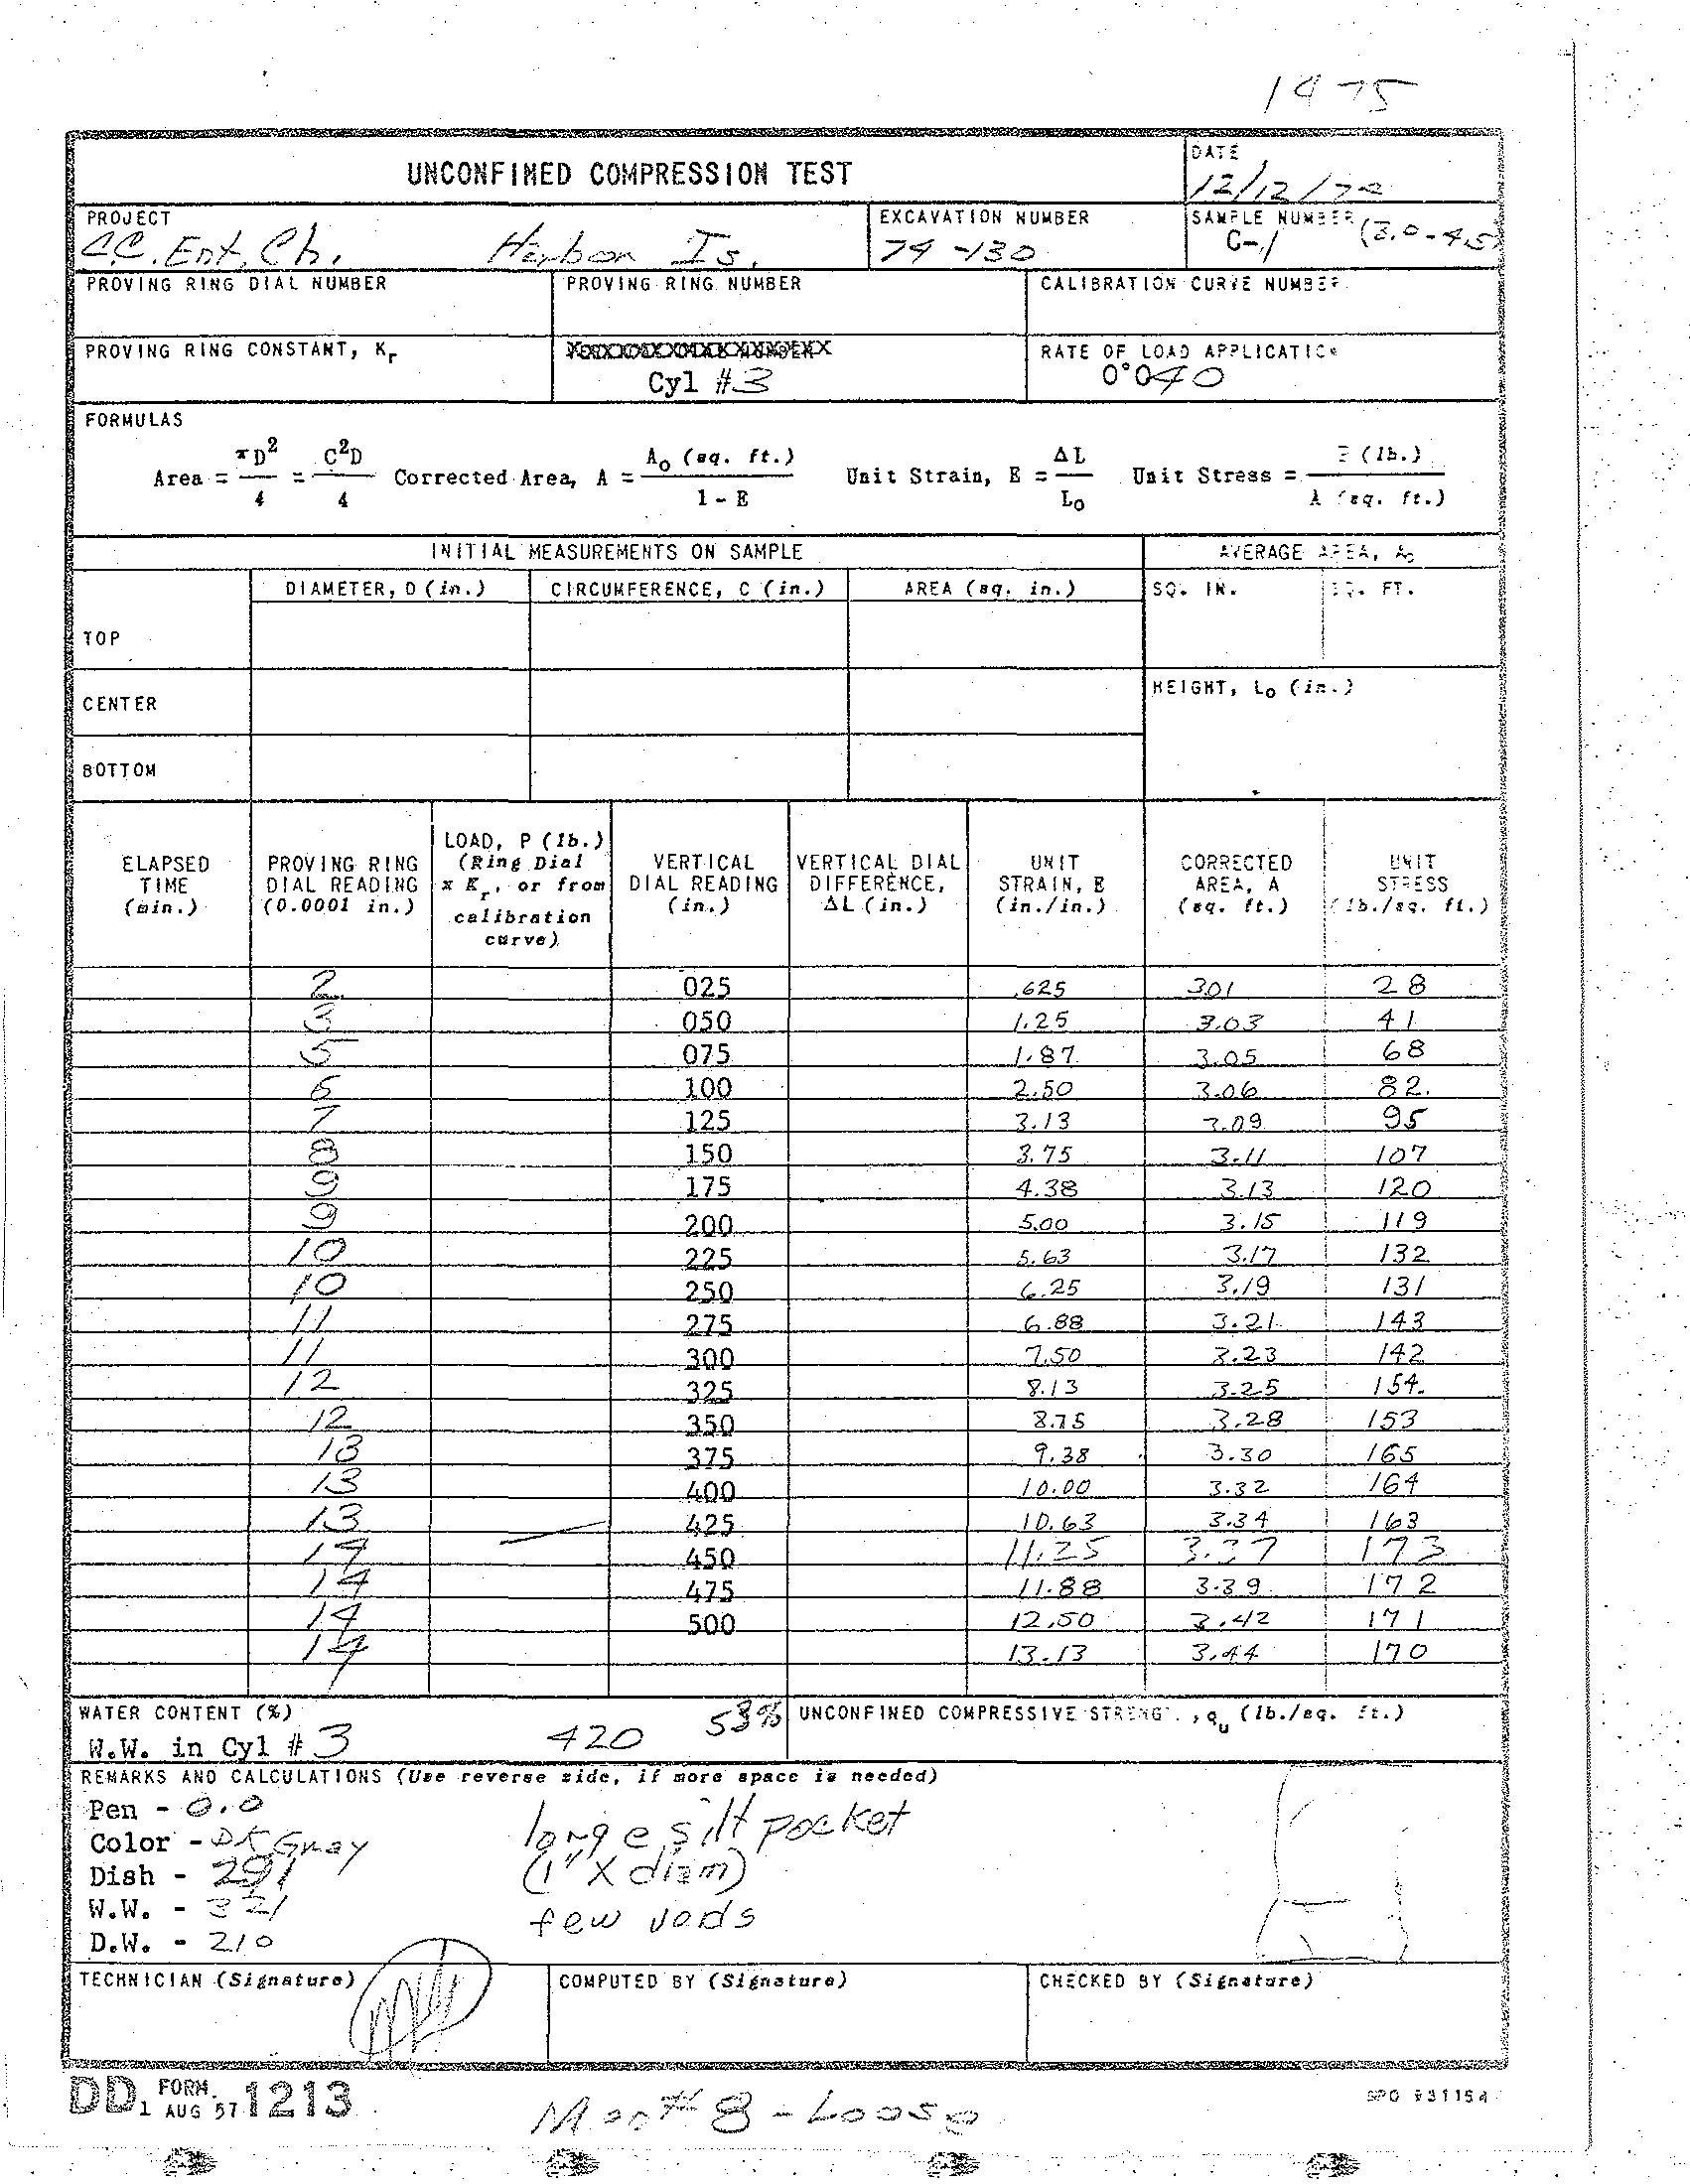 1475
UNCONFINED COMPRESSION TEST
DATE
12/12/72
PROJECT
C.C. Ent. Ch. Harbor Is.
EXCAVATION NUMBER
74-130
SAMPLE NUMBER
C-1 (3.0-4.5)
PROVING RING DIAL NUMBER
PROVING RING NUMBER
CALIBRATION CURVE NUMBER
PROVING RING CONSTANT, Kr
Cyl #3
RATE OF LOAD APPLICATION
0.040
FORMULAS
Area = πD²/4 = C²D/4 Corrected Area, A = A₀ (sq. ft.)/1 - E Unit Strain, E = ΔL/L₀ Unit Stress = P (lb.)/A (sq. ft.)
INITIAL MEASUREMENTS ON SAMPLE
AVERAGE AREA, A₀
DIAMETER, D (in.) CIRCUMFERENCE, C (in.) AREA (sq. in.) SQ. IN. SQ. FT.
TOP
CENTER
HEIGHT, L₀ (in.)
BOTTOM
ELAPSED TIME (min.)
PROVING RING DIAL READING (0.0001 in.)
LOAD, P (lb.) (Ring Dial x Kr, or from calibration curve)
VERTICAL DIAL READING (in.)
VERTICAL DIAL DIFFERENCE, ΔL (in.)
UNIT STRAIN, E (in./in.)
CORRECTED AREA, A (sq. ft.)
UNIT STRESS (lb./sq. ft.)
2 025 .625 3.01 28
3 050 1.25 3.03 41
5 075 1.87 3.05 68
6 100 2.50 3.06 82.
7 125 3.13 3.09 95
8 150 3.75 3.11 107
9 175 4.38 3.13 120
9 200 5.00 3.15 119
10 225 5.63 3.17 132
10 250 6.25 3.19 131
11 275 6.88 3.21 143
11 300 7.50 3.23 142
12 325 8.13 3.25 154.
12 350 8.75 3.28 153
13 375 9.38 3.30 165
13 400 10.00 3.32 164
13 425 10.63 3.34 163
14 450 11.25 3.37 173
14 475 11.88 3.39 172
14 500 12.50 3.42 171
14 13.13 3.44 170
WATER CONTENT (%)
W.W. in Cyl # 3 420 53%
UNCONFINED COMPRESSIVE STRENGTH, qu (lb./sq. ft.)
REMARKS AND CALCULATIONS (Use reverse side, if more space is needed)
Pen - 0.0
Color - DK Gray
Dish - 291
W.W. - 321
D.W. - 210
large silt pocket
(1" X diam)
few voids
TECHNICIAN (Signature)
COMPUTED BY (Signature)
CHECKED BY (Signature)
DD FORM 1 AUG 57 1213
GPO 931154
Mon # 8 - Loose